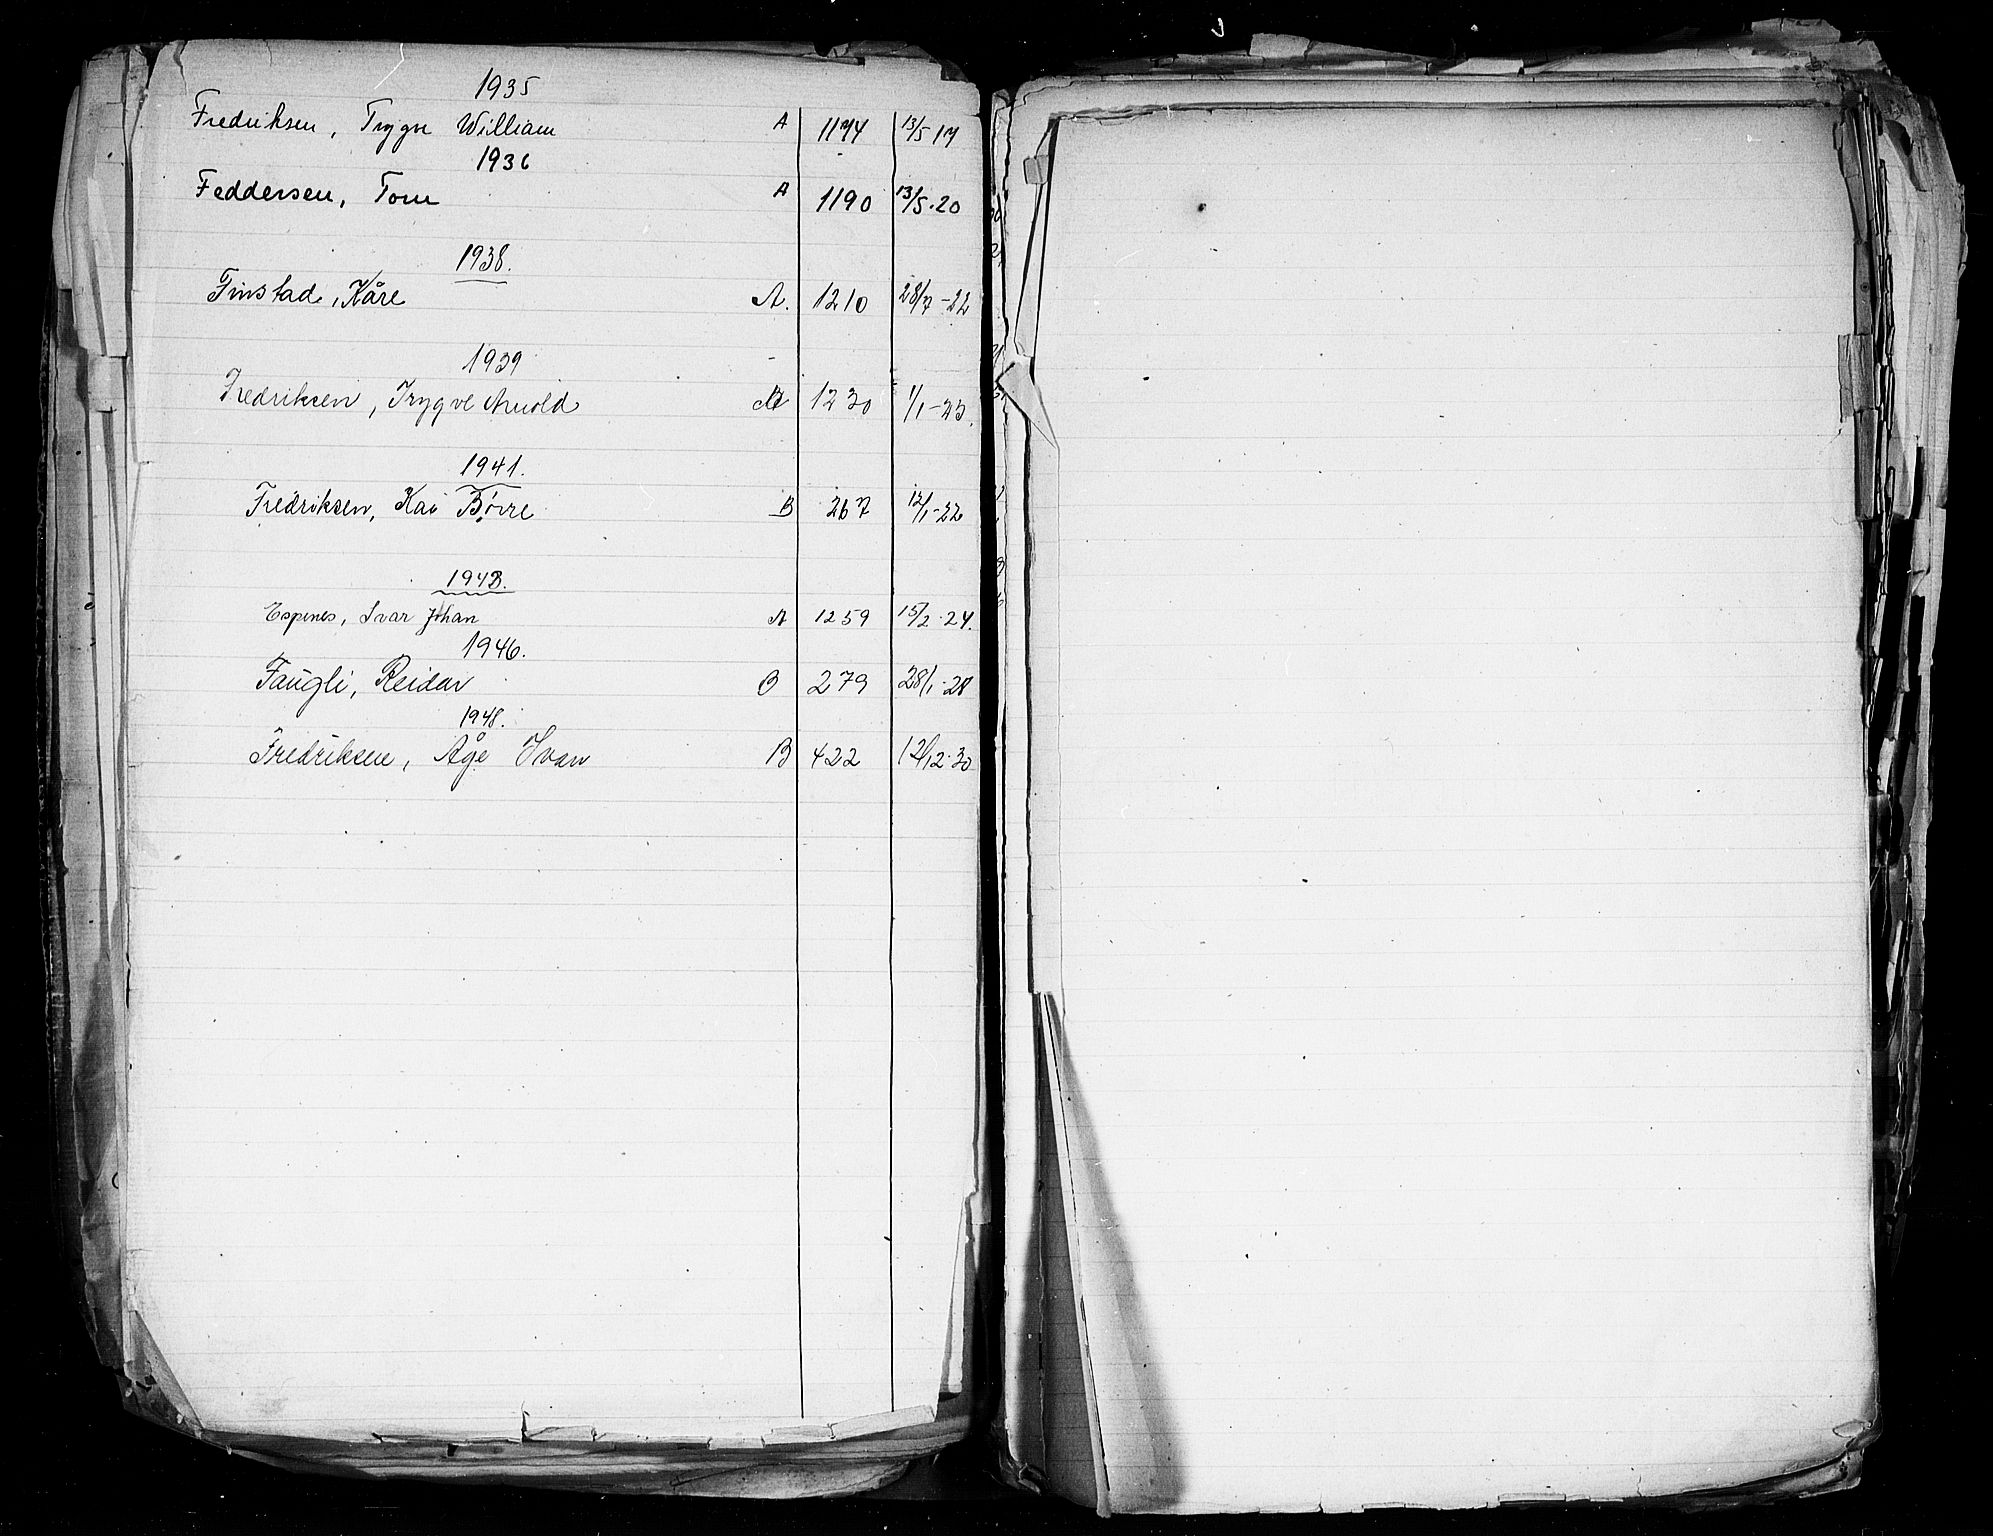 1935
Fredriksen, Trygve William A 1174 13/5 17
1936
Feddersen, Tom A 1190 13/5.20
1938.
Finstad, Kåre A. 1210 28/7-22
1939
Fredriksen, Trygve Arnold 1230 1/1-23.
1941.
Fredriksen, Kai Børre B 267 12/1-22
1943.
Espenes, Ivar Johan A 1259 15/2.24.
1946.
Faugli, Reidar B 279 28/1-28
1948.
Fredriksen, Åge Ivan B 422 12/12.30